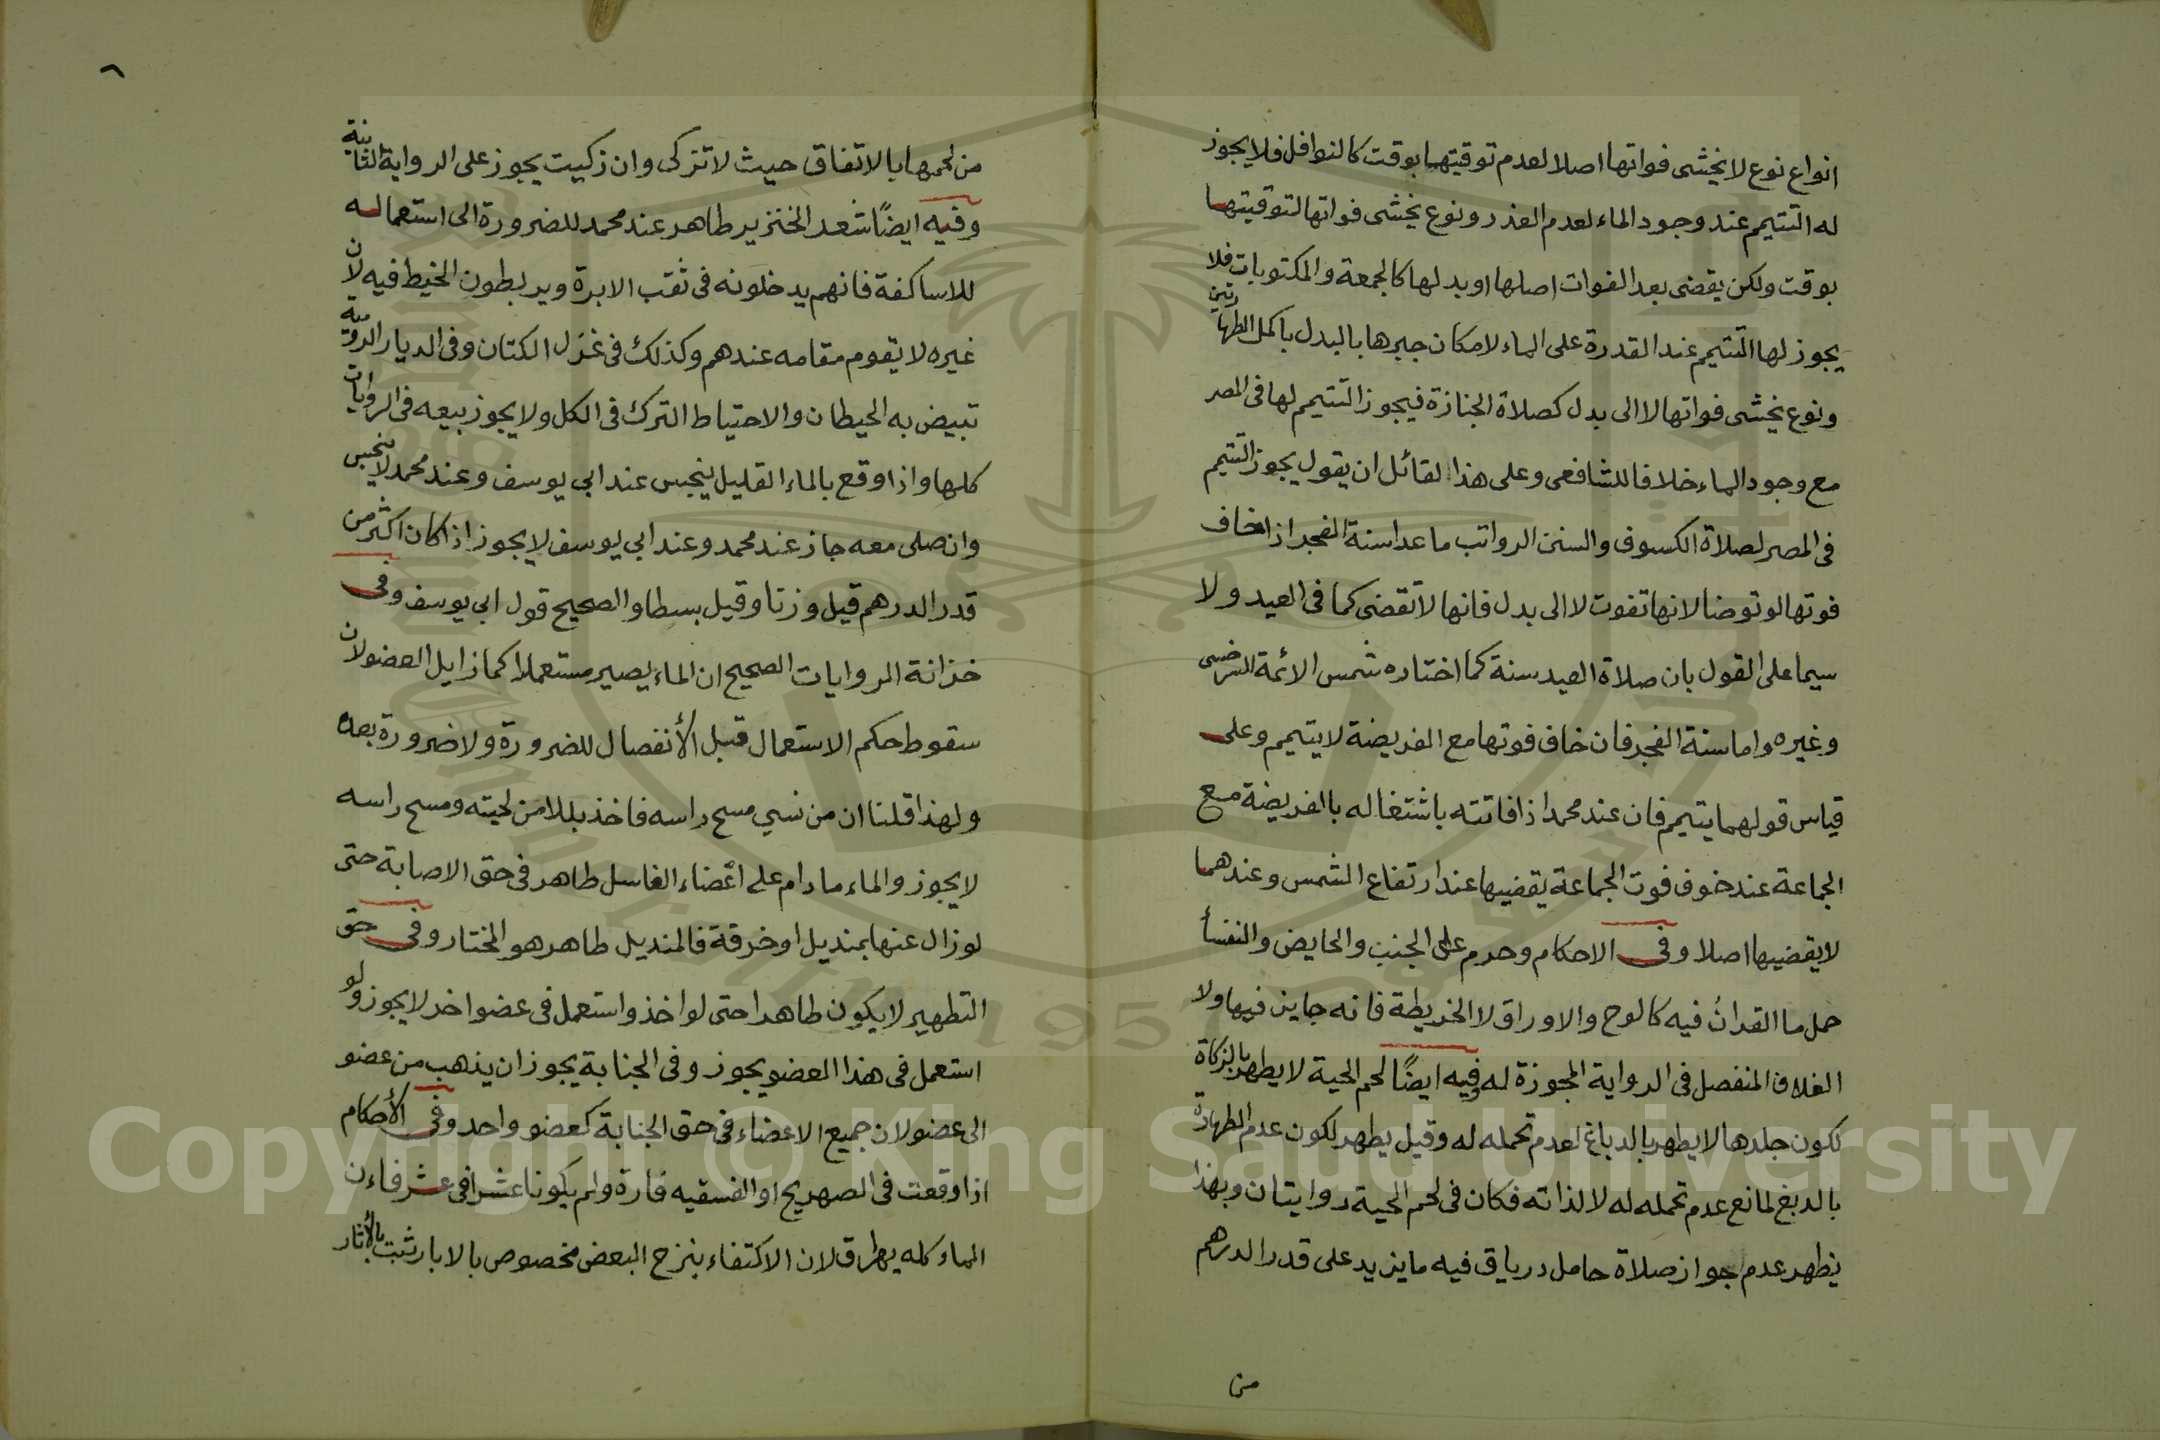 انواع نوع لا يخشى فواتها اصلا لعدم توقيتها بوقت كالنوافل فلا يجوز
له التيمم عند وجود الماء لعدم العذر ونوع يخشى فواتها لتوقيتها
بوقت ولكن يقضى بعد الفوات اصلها او بدلها كالجمعة والمكتوبات فلا
يجوز لها التيمم عند القدرة على الماء لامكان جبرها بالبدل باكمل الطهارتين
ونوع يخشى فواتها لا الى بدل كصلاة الجنازة فيجوز التيمم لها فى المصر
مع وجود الماء خلافا للشافعى وعلى هذا القائل ان يقول يجوز التيمم
فى المصر لصلاة الكسوف والسنن الرواتب ما عدا سنة الفجر اذا خاف
فوتها لو توضا لانها تفوت لا الى بدل فانها لا تقضى كما فى العيد ولا
سيما على القول بان صلاة العيد سنة كما اختاره شمس الائمة السرخسى
وغيره واما سنة الفجر فان خاف فوتها مع الفريضة لا يتيمم وعلى
قياس قولهما يتيمم فان عند محمد اذا فاتته باشتغاله بالفريضة مع
الجماعة عند خوف فوت الجماعة يقضيها عند ارتفاع الشمس وعندهما
لا يقضيها اصلا وفى الاحكام وحرم على الجنب والحايض والنفسأ
حمل ما القدان فيه كالوح والاوراق لا الخريطة فانه جايز فيها ولا
الغلاف المنفصل فى الرواية المجوزة له وفيه ايضًا لحم الحية لا يطهر بالزكاة
لكون جلدها لا يطهر بالدباغ لعدم تحمله له وقيل يطهر لكون عدم الطهارة
بالدبغ لمانع عدم تحمله له لا لذاته فكان فى لحم الحية روايتان وبهذا
يظهر عدم جواز صلاة حامل درياق فيه ما يزيد على قدر الدرهم
من
من لحمها بالاتفاق حيث لا تزكى وان زكيت يجوز على الرواية الثانية
وفيه ايضًا شعر الخنزير طاهر عند محمد للضرورة الى استعماله
للاساكفة فانهم يدخلونه فى ثقب الابرة ويربطون الخيط فيه لان
غيره لا يقوم مقامه عندهم وكذلك فى غزل الكتان وفى الديار الرومية
تبيض به الحيطان والاحتياط الترك فى الكل ولا يجوز بيعه فى الروايات
كلها واذا وقع بالماء القليل ينجس عند ابي يوسف وعند محمد لا ينجس
وان صلى معه جاز عند محمد وعند ابي يوسف لا يجوز اذا كان اكثر من
قدر الدرهم قيل وزنا وقيل بسطا والصحيح قول ابي يوسف وفى
خزانة الروايات الصحيح ان الماء يصير مستعملا كما زايل العضو لان
سقوط حكم الاستعمال قبل الأنفصال للضرورة ولا ضرورة بعده
ولهذا قلنا ان من نسي مسح راسه فاخذ بللا من لحيته ومسح راسه
لا يجوز والماء ما دام على اعضاء الغاسل طاهر فى حق الاصابة حتى
لو زال عنها بمنديل او خرقة فالمنديل طاهر هو المختار وفى حق
التطهير لا يكون طاهرا حتى لو اخذ واستعمل فى عضو اخر لا يجوز ولو
استعمل فى هذا العضو يجوز وفى الجنابة يجوز ان يذهب من عضو
الى عضو لان جميع الاعضاء فى حق الجنابة كعضو واحد وفى الأحكام
اذا وقعت فى الصهريج او الفسقيه فارة ولم يكونا عشرا فى عشر فان
الماء كله يهراق لان الاكتفاء بنزح البعض مخصوص بالابار ثبت بالأثار
Copyright © King Saud University
1957